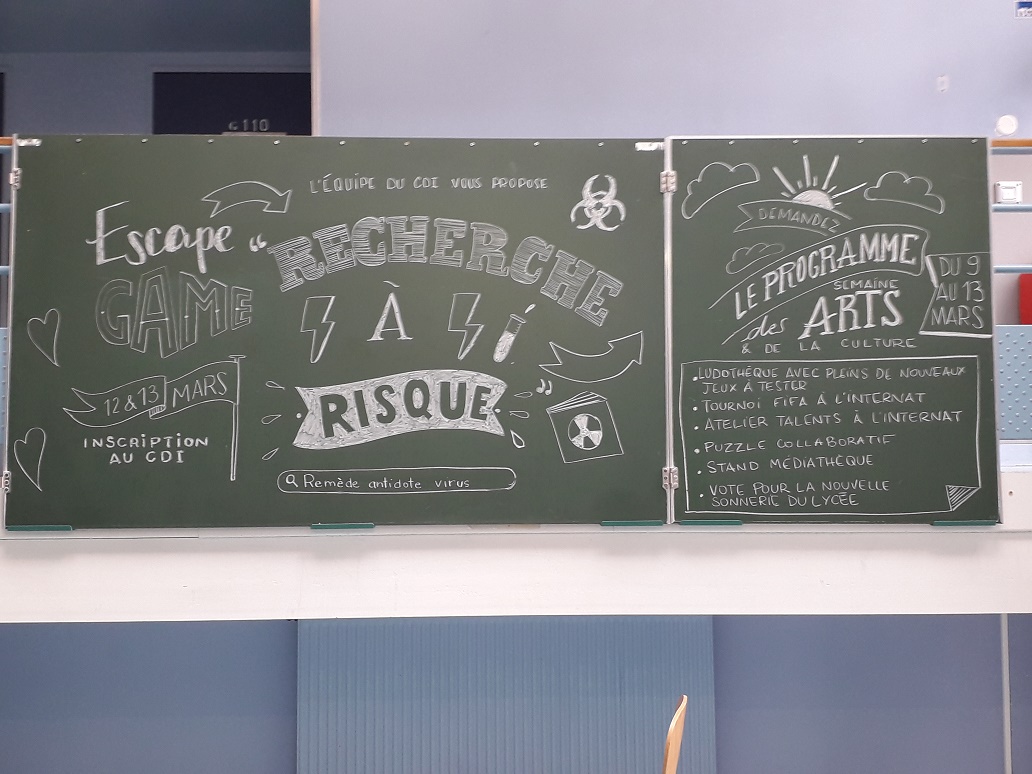 G 110
L'ÉQUIPE DU CDI VOUS PROPOSE
Escape
GAME
"RECHERCHE
À
RISQUE
12 & 13 MARS
INSCRIPTION
AU CDI
Remède antidote virus
DEMANDEZ
LE PROGRAMME
SEMAINE
des ARTS
& DE LA CULTURE
DU 9
AU 13
MARS
• LUDOTHÈQUE AVEC PLEINS DE NOUVEAUX
JEUX À TESTER
• TOURNOI FIFA À L'INTERNAT
• ATELIER TALENTS À L'INTERNAT
• PUZZLE COLLABORATIF
• STAND MÉDIATHÈQUE
• VOTE POUR LA NOUVELLE
SONNERIE DU LYCÉE